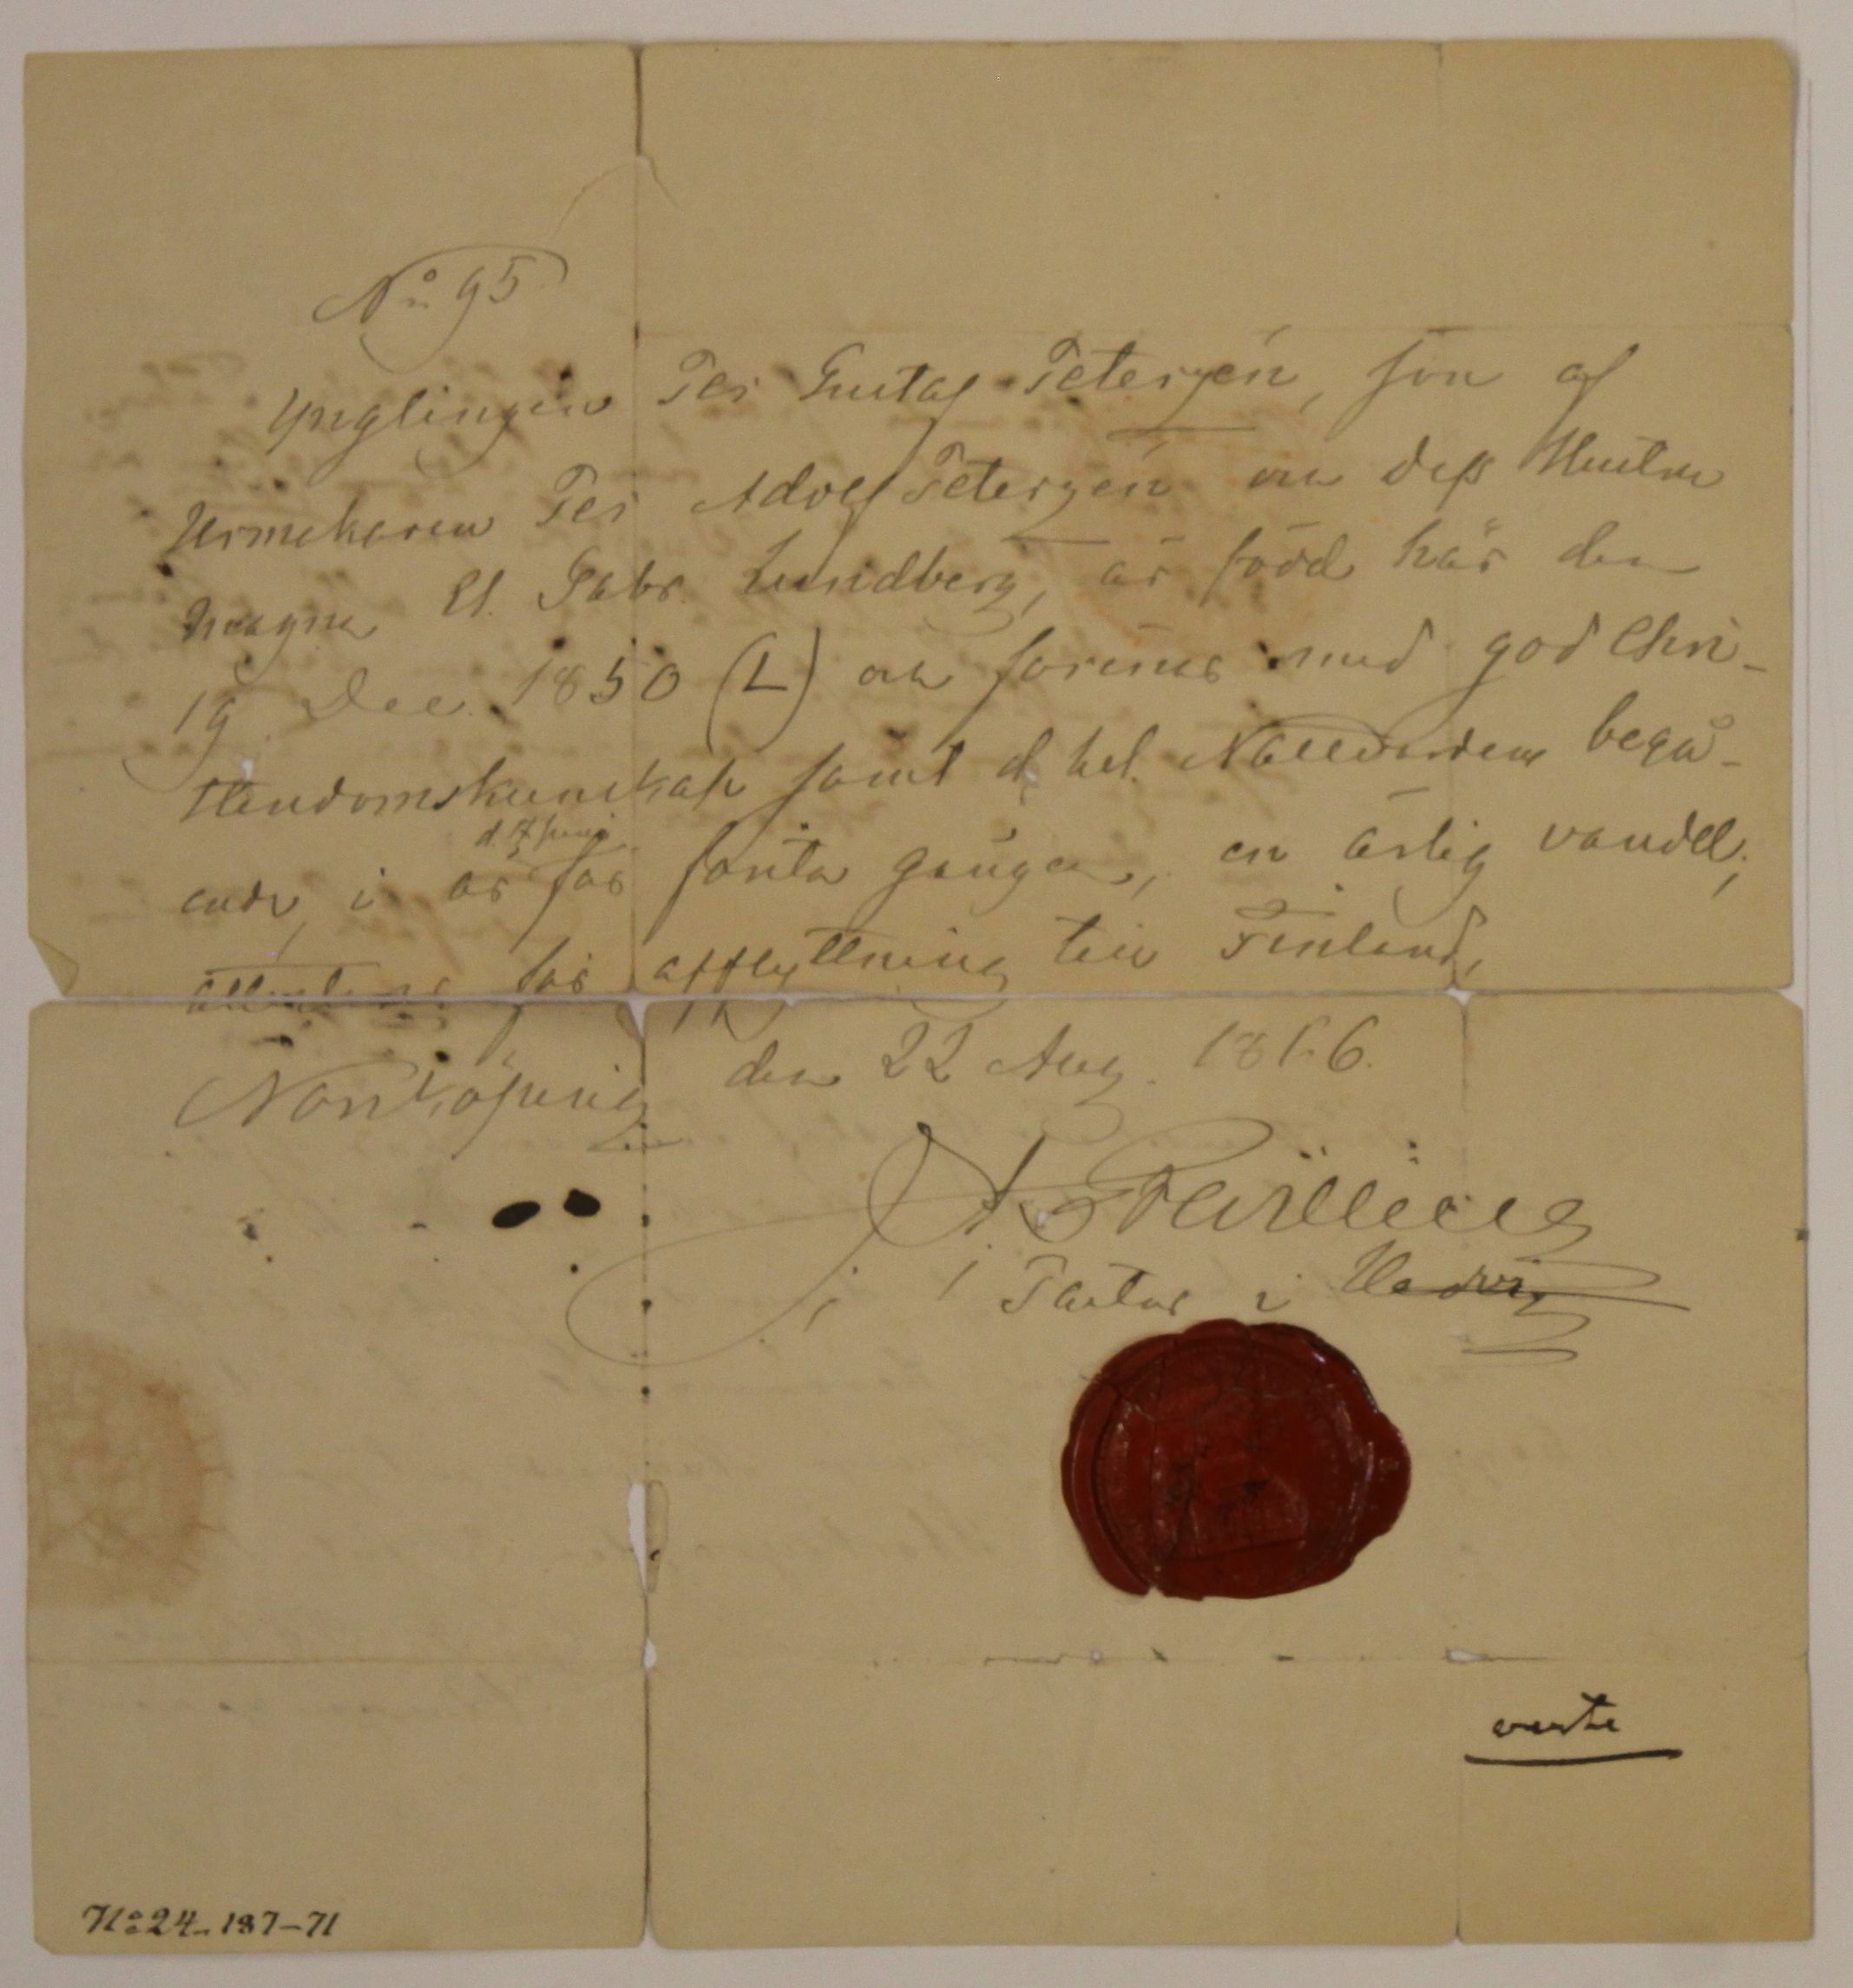 No 95
Ynglingen Per Gustaf Peterzén, son af
Urmakaren Per Adolf Peterzén och dess Hustru
Magna El. Gabr. Lundberg, är född här den
19 Dec. 1850 (L) och förenar med god Chri-
stendomskunskap samt d. hel. Nattvardens begå-
ende, i år för första gången, en ärlig vandel;
d. 17 Juni
för afflyttning till Finland,
Norrköping den 22 Aug. 1866.
Pastor i Hedvig
verte
No 24. 187-71